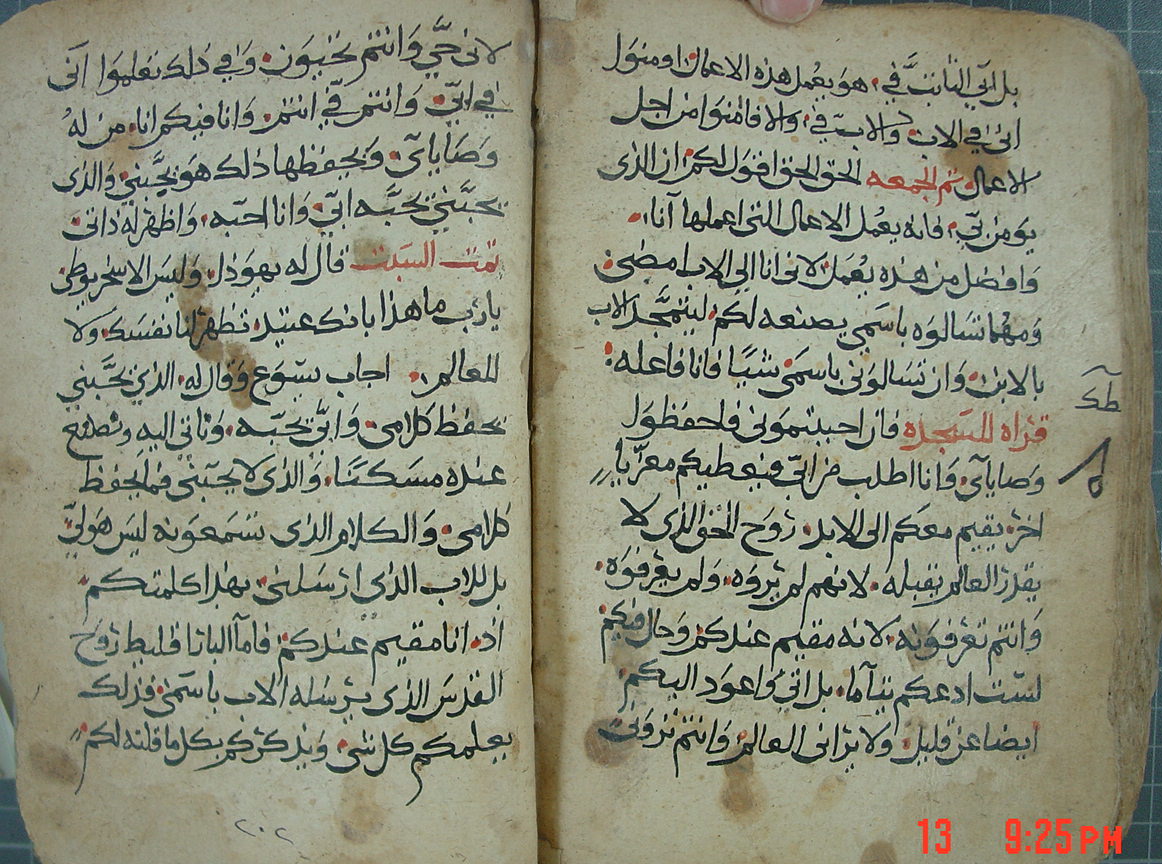 بل ابي الثابت فيّ. هو يعمل هذه الاعمال. اومنوا
اني في الاب والاب فيّ. والا فامنوا من اجل
الاعمال. تم الجمعه الحق الحق اقول لكم. ان الذى
يومن بي. فانه يعمل الاعمال التى اعملها انا.
وافضل من هذه يعمل. لانى انا الى الاب امضى.
ومهما تسالوه باسمي يصنعه لكم. ليتمجد الاب
بالابن. وان تسالونى باسمى شيًا فانا فاعله.
قراه للسجده فان احببتمونى فاحفظوا
وصاياى. وانا اطلب من ابى فيعطيكم معزيا
اخر. يقيم معكم الى الابد. روح الحق الذى لا
يقدر العالم يقبله. لانهم لم يروه. ولم يعرفوه.
وانتم تعرفونه. لانه مقيم عندكم. وحال فيكم
لست ادعكم يتاما. بل اتى واعود اليكم.
ايضا عن قليل. ولا يرانى العالم. وانتم ترونى.
لانى حي وانتم تحيون. وفي ذلك تعلموا انى
في ابى. وانتم فيّ انتم. وانا فيكم انا. من له
وصاياى. ويحفظها ذلك هو يحبني. والذى
يحبني يحبه ابى. وانا احبه. واظهر له ذاتى
تمت السبت قال له يهوذا. وليس الاسخريوطى
يارب ما هذا بانك عتيد. تظهر لنا نفسك. ولا
للعالم. اجاب يسوع وقال له. الذي يحبني
يحفظ كلامى. وابى يحبه. وناتى اليه ونصنع
عنده مسكنًا. والذى لا يحبنى فما يحفظ
كلامى. والكلام الذى تسمعونه ليس هو لى
بل للاب الذى ارسلنى. بهذا كلمتكم
اذ انا مقيم عندكم. فاما البارقليط روح
القدس الذى يرسله الاب باسمى. فذلك
يعلمكم كل شى. ويذكركم بكل ما قلته لكم
٢٠٢
13 9:25 PM